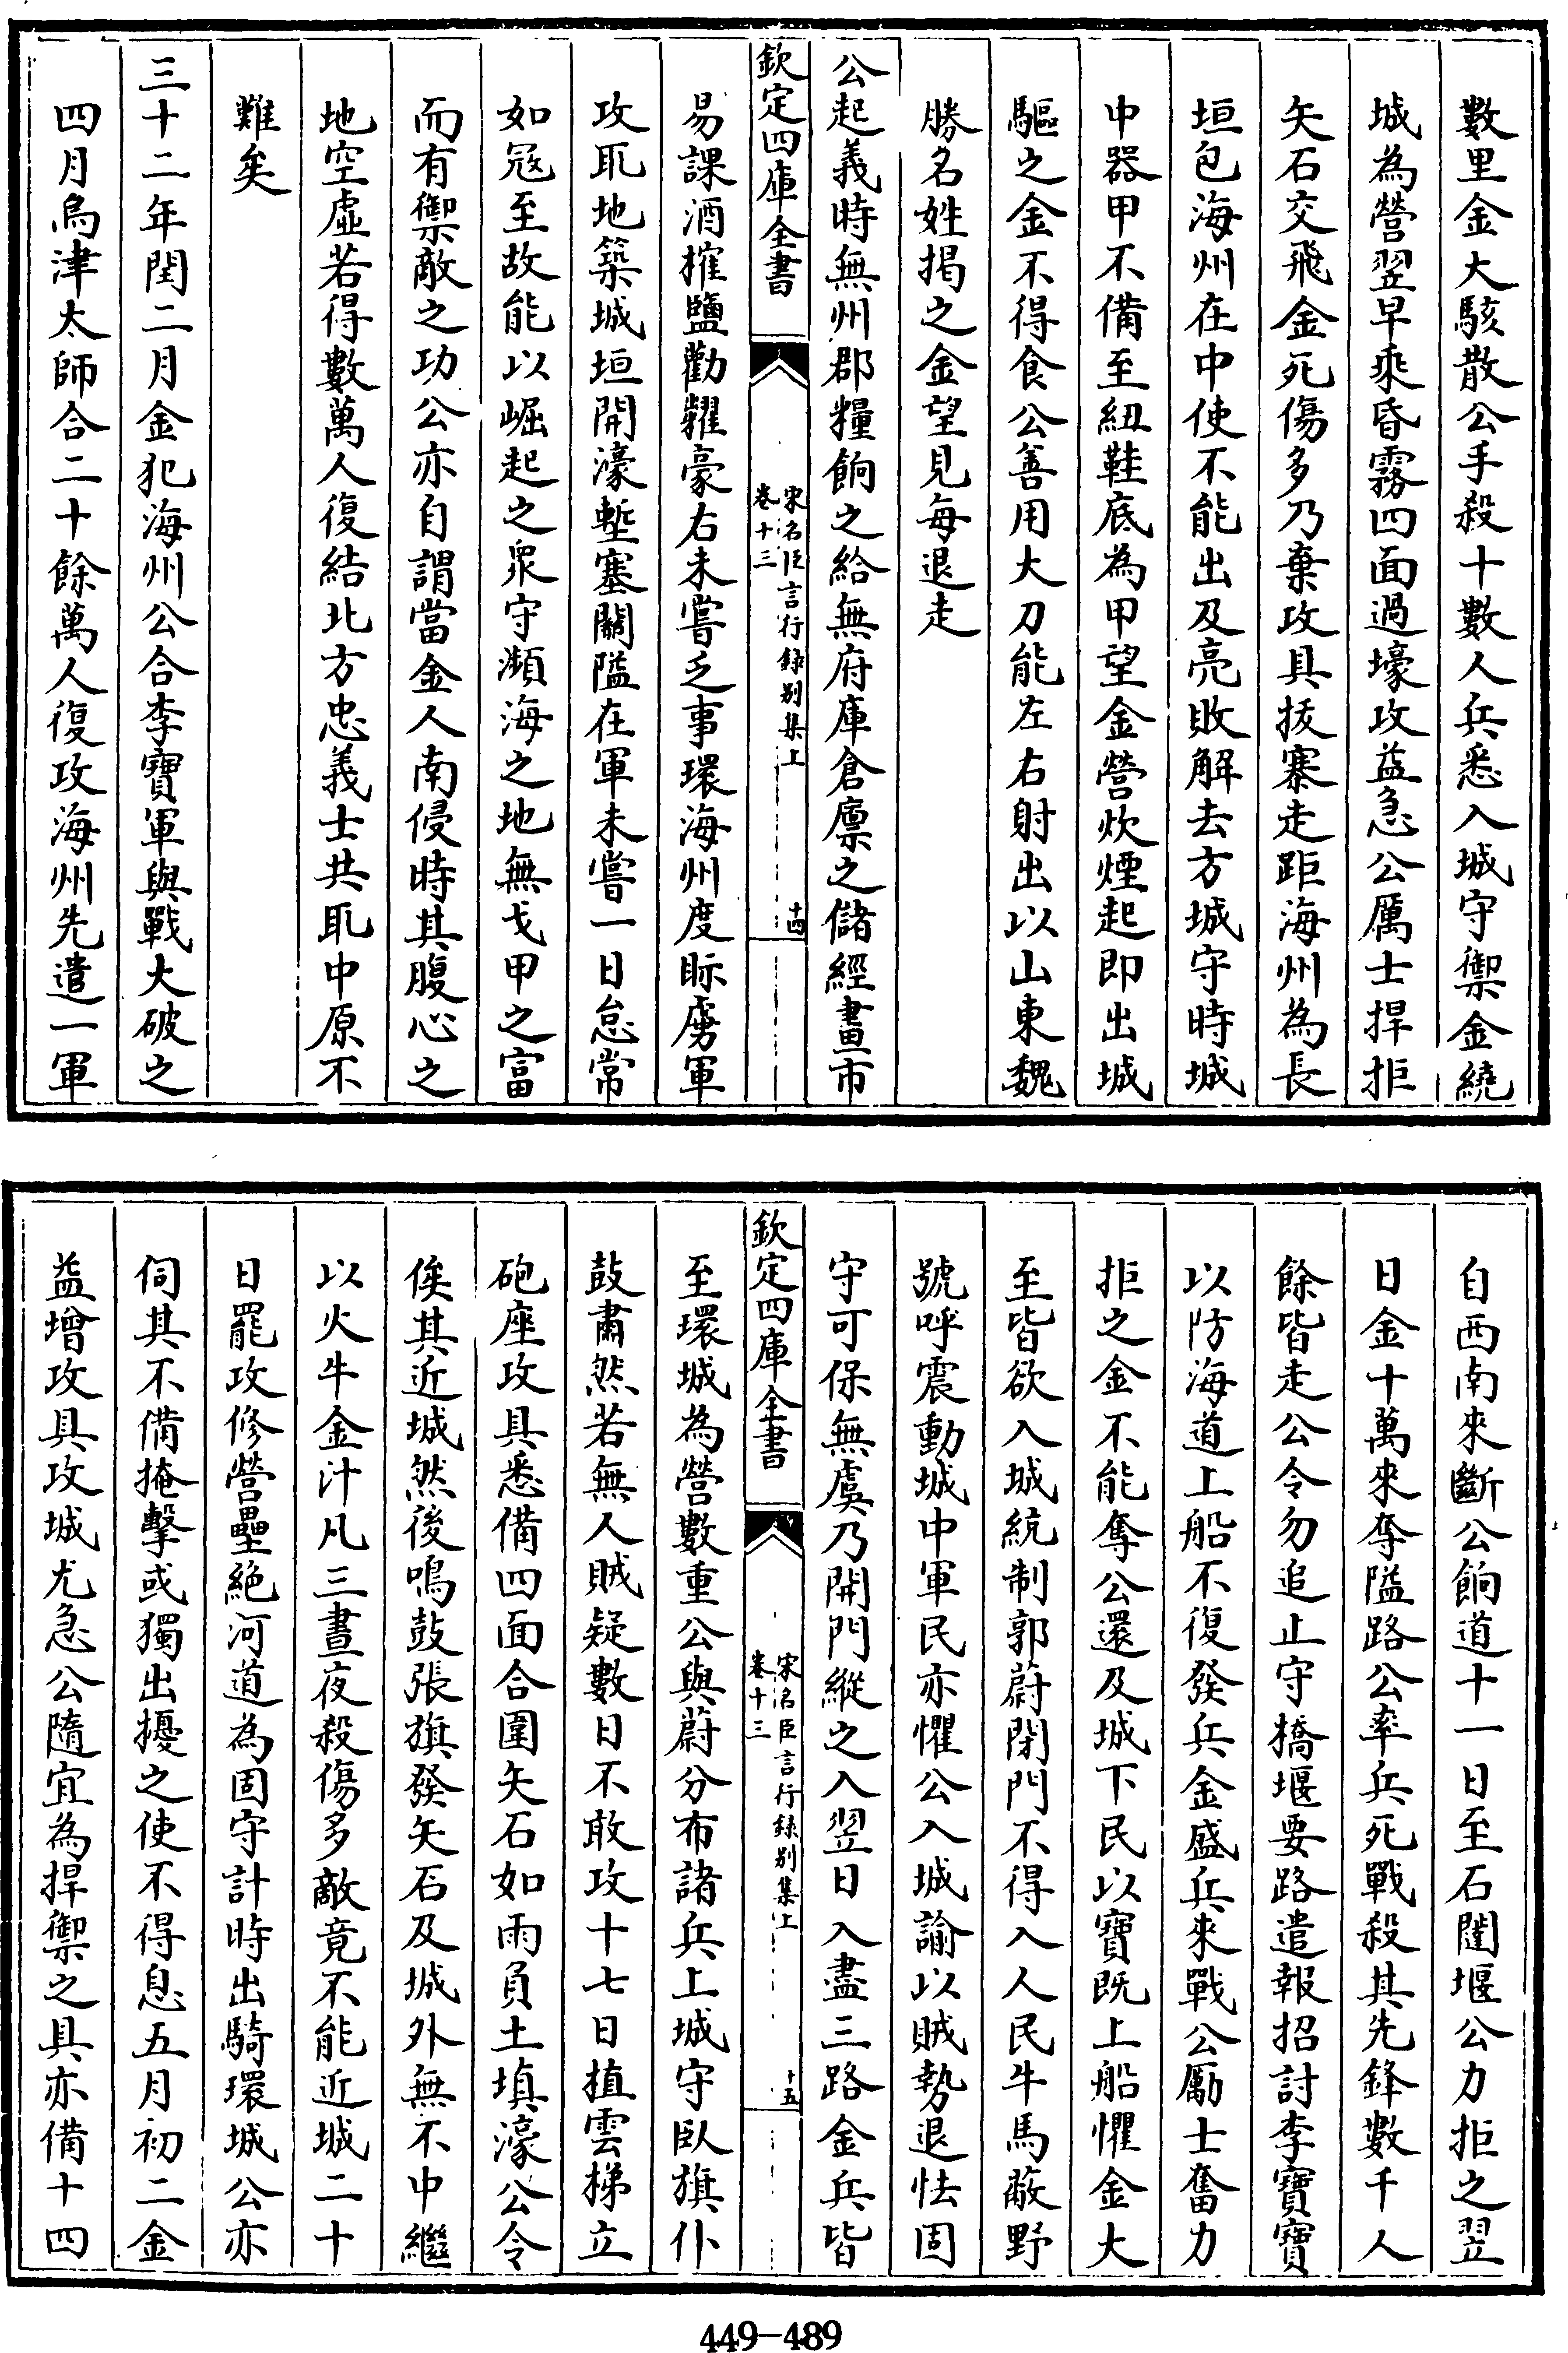 數里金大駭散公手殺十數人兵悉入城守禦金繞
城為營翌早乘昏霧四面過壕攻益急公厲士捍拒
矢石交飛金死傷多乃棄攻具拔寨走距海州為長
垣包海州在中使不能出及亮敗解去方城守時城
中器甲不備至紐鞋底為甲望金營炊煙起即出城
驅之金不得食公善用大刀能左右射出以山東魏
勝名姓揭之金望見每退走
公起義時無州郡糧餉之給無府庫倉廪之儲經畫市
欽定四庫全書
宋名臣言行録别集上
卷十三
十四
易課酒搉鹽勸糶豪右未嘗乏事環海州度眎虜軍
攻耴地築城垣開濠塹塞關隘在軍未嘗一日怠常
如冦至故能以崛起之衆守瀕海之地無戈甲之富
而有禦敵之功公亦自謂當金人南侵時其腹心之
地空虛若得數萬人復結北方忠義士共耴中原不
難矣
三十二年閏二月金犯海州公合李寶軍與戰大破之
四月烏津太師合二十餘萬人復攻海州先遣一軍
自西南來斷公餉道十一日至石闥堰公力拒之翌
日金十萬來夺隘路公率兵死戰殺其先鋒數千人
餘皆走公令勿追止守橋堰要路遣報招討李寶寶
以防海道上船不復發兵金盛兵來戰公勵士奮力
拒之金不能奪公還及城下民以寶既上船懼金大
至皆欲入城統制郭蔚閉門不得入人民牛馬蔽野
號呼震動城中軍民亦懼公入城諭以賊勢退怯固
守可保無虞乃開門縱之入翌日入盡三路金兵皆
欽定四庫全書
宋名臣言行録别集上
卷十三
十五
至環城為營數重公與蔚分布諸兵上城守臥旗仆
鼓肅然若無人賊疑數日不敢攻十七日植雲梯立
砲座攻具悉備四面合圍矢石如雨負土填濠公令
俟其近城然後鳴鼓張旗發矢石及城外無不中繼
以火牛金汁凡三晝夜殺傷多敵竟不能近城二十
日罷攻修營壘絶河道為固守計時出騎環城公亦
伺其不備掩擊或獨出擾之使不得息五月初二金
益增攻具攻城尤急公隨宜為捍禦之具亦備十四
449-489